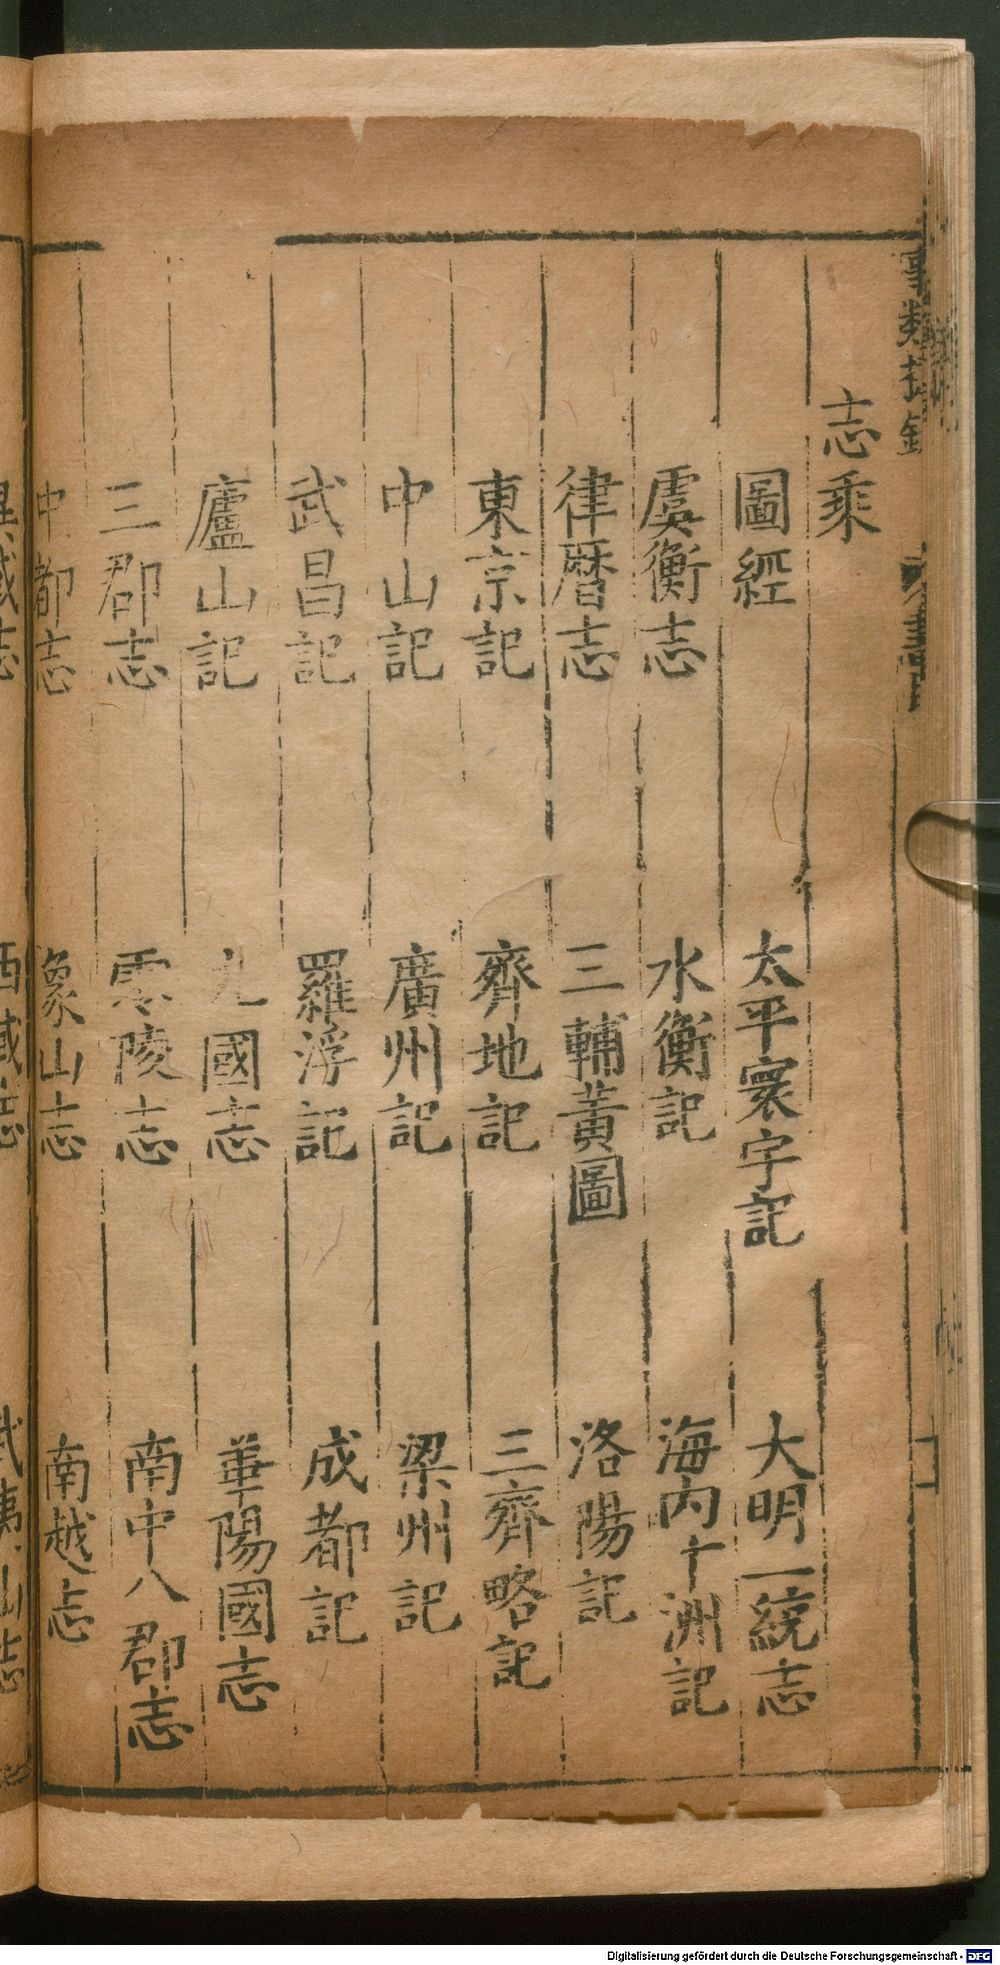 志乘
圖經　太平寰宇記　大明一統志
虞衡志　水衡記　海内十洲記
律暦志　三輔黃圖　洛陽記
東京記　齊地記　三齊略記
中山記　廣州記　梁州記
武昌記　羅浮記　成都記
廬山記　九國志　華陽國志
三郡志　零陵志　南中八郡志
中都志　象山志　南越志
武夷山志
Digitalisierung gefördert durch die Deutsche Forschungsgemeinschaft - DFG